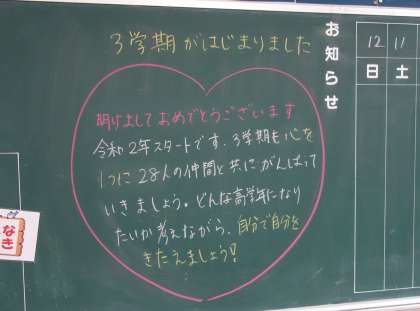 3学期がはじまりました
明けましておめでとうございます
令和2年スタートです。3学期も心を
1つに28人の仲間と共にがんばって
いきましょう。どんな高学年になり
たいか考えながら、自分で自分を
きたえましょう!
お知らせ
12 11
日 土
なき